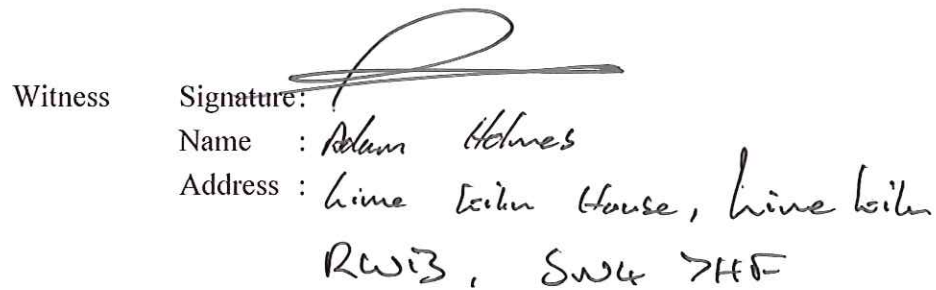 Witness Signature:
Name : Adam Holmes
Address : Lime Kiln House, Lime Kiln
RWB, SN4 7HF